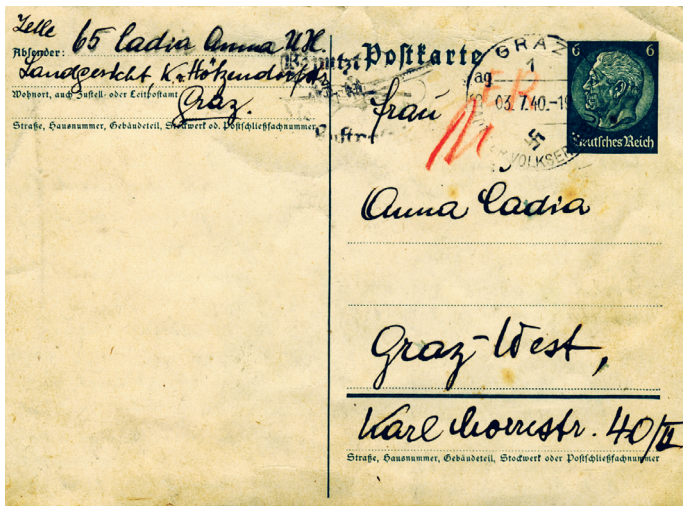 Zelle
Absender: 65 Cadia Anna U.H.
Landgericht, K. Hötzendorfstr
Wohnort, auch Zustell- oder Leitpostamt
Graz.
Straße, Hausnummer, Gebäudeteil, Stockwerk od. Postschließfachnummer
Postkarte
GRAZ
1
03.7.40.-19
VOLKSER
6 6
Deutsches Reich
Frau
Anna Cadia
Graz-West,
Karl Morrestr. 40/II
Straße, Hausnummer, Gebäudeteil, Stockwerk oder Postschließfachnummer